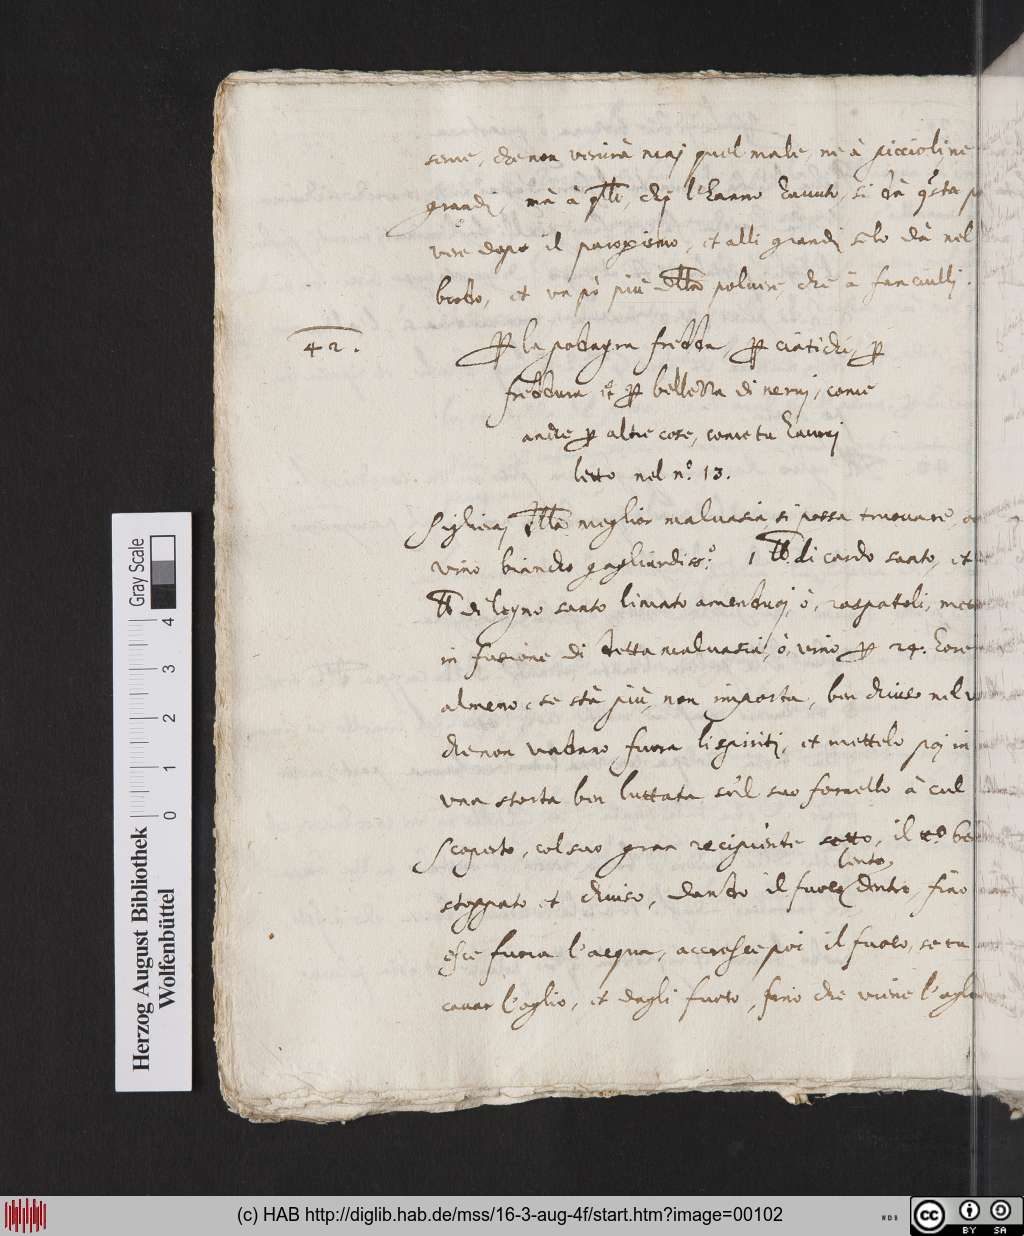 serue, che non venirà maj quel male, ne à piccioline
grandj, mà à q̃lli, chj l'hanno hauuto, si dà q̃sta
vere dopo il paropismo, et alli grandj solo dà nel
brodo, et un pò più della poluere, che à fanciullj.
42.
P la podagra fredda, p ciatichi, p
freddura et p bellezza di neruj, come
anche p altre cose, come tu hauraj
letto nel n.º 13.
Piglieraj della meglior maluasia, si possa truouare, o
vino biancho gagliardiss.º 1 ℔. di cardo santo, et
℔ di legno santo limato amenduoj, ò, raspatoli, met
in fusione di detta maluasia, ò, vino p 24. hore
almeno, se stà più, non importa, ben chiuso nel
che non vadano fuora li spiritj, et mettelo poj in
una storta ben luttata, sù'l suo fornello à cul
scoperto, col suo gran recipiente sotto, il tº be
lento
stoppato et chiuso, dando il fuoco dentro, fino
esce fuora l'acqua, accresce poi il fuoco, se tu
cauar l'oglio, et dagli fuoco, fino che viene l'oglio
Herzog August Bibliothek
Wolfenbüttel
Gray Scale
0 1 2 3 4
(c) HAB http://diglib.hab.de/mss/16-3-aug-4f/start.htm?image=00102
WDB
cc BY SA